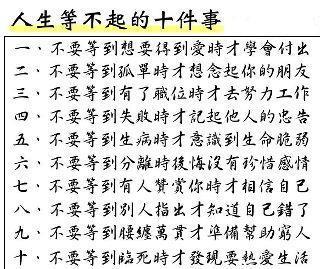 人生等不起的十件事
一、不要等到想要得到愛時才學會付出
二、不要等到孤單時才想念起你的朋友
三、不要等到有了職位時才去努力工作
四、不要等到失敗時才記起他人的忠告
五、不要等到生病時才意識到生命脆弱
六、不要等到分離時後悔沒有珍惜感情
七、不要等到有人讚賞你時才相信自己
八、不要等到別人指出才知道自己錯了
九、不要等到腰纏萬貫才準備幫助窮人
十、不要等到臨死時才發現要熱愛生活